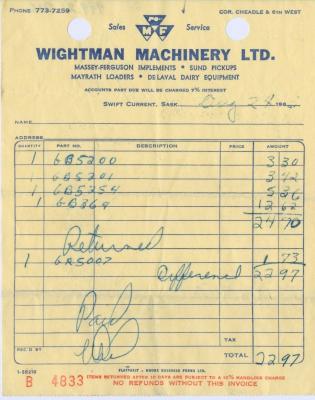 PHONE 773-7259
COR. CHEADLE & 6TH WEST
Sales MF Service
WIGHTMAN MACHINERY LTD.
MASSEY-FERGUSON IMPLEMENTS • SUND PICKUPS
MAYRATH LOADERS • DE LAVAL DAIRY EQUIPMENT
ACCOUNTS PAST DUE WILL BE CHARGED 7% INTEREST
SWIFT CURRENT, SASK. Aug 196
NAME
ADDRESS
QUANTITY PART NO. DESCRIPTION PRICE AMOUNT
1 GB5200 3 30
1 GB5201 3 42
1 GB5254 5 36
1 GB369 12 62
24 70
Returned
1 GA5007 1 73
Difference 22 97
Paid
TAX
REC'D BY
TOTAL 22 97
B 4833
ITEMS RETURNED AFTER 10 DAYS ARE SUBJECT TO A 10% HANDLING CHARGE
NO REFUNDS WITHOUT THIS INVOICE